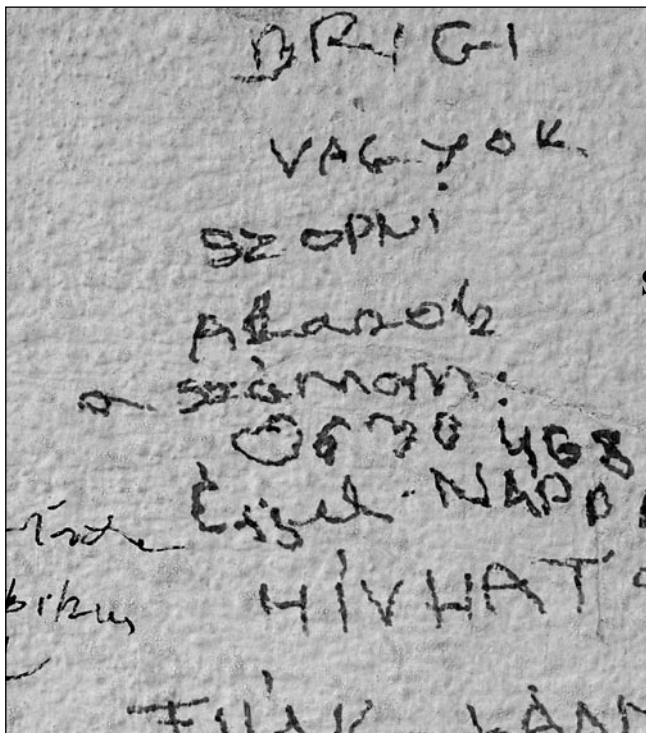 BRIGI
VAGYOK
SZOPNI
AKAROK
a számom:
0630 468
Éjjel-NAPPA
HÍVHAT
FIÚK LÁN